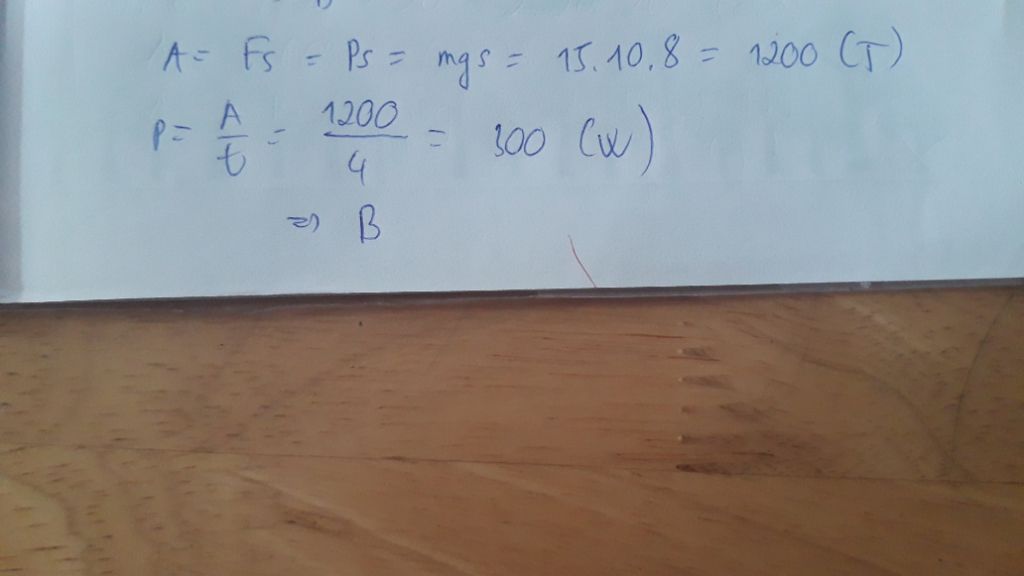 A = Fs = Ps = mgs = 15.10.8 = 1200 (J)
P = A/t = 1200/4 = 300 (W)
⇒ B